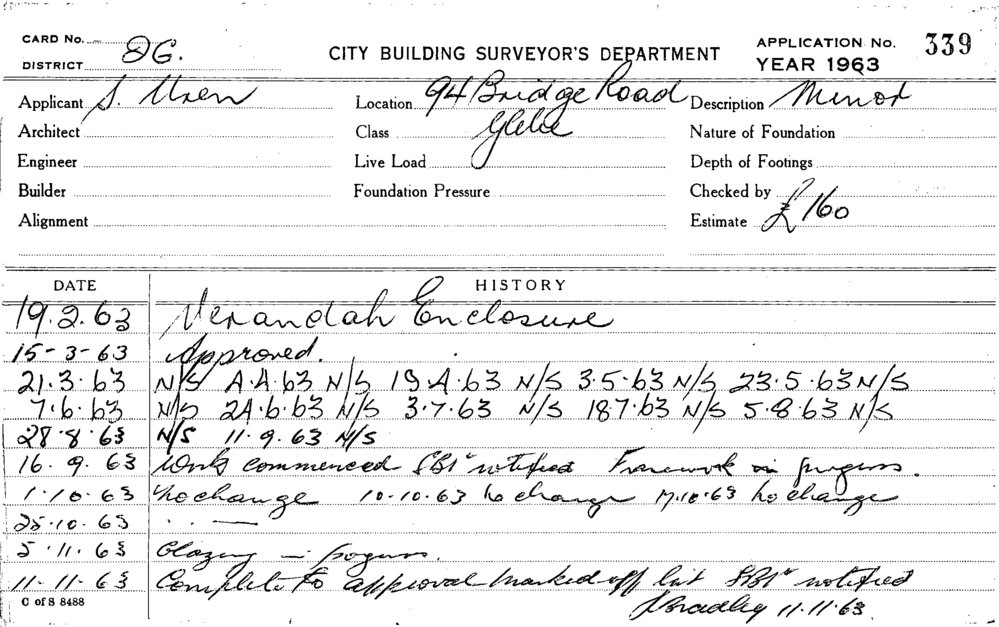 CARD No. DG. CITY BUILDING SURVEYOR'S DEPARTMENT APPLICATION No. 339
DISTRICT YEAR 1963
Applicant S. Uren Location 94 Bridge Road Description Minor
Architect Class Glebe Nature of Foundation
Engineer Live Load Depth of Footings
Builder Foundation Pressure Checked by
Alignment Estimate £160
DATE HISTORY
19.2.63 Verandah Enclosure
15-3-63 Approved.
21.3.63 N/S 4.4.63 N/S 19.4.63 N/S 3.5.63 N/S 23.5.63 N/S
7.6.63 N/S 24.6.63 N/S 3.7.63 N/S 18.7.63 N/S 5.8.63 N/S
28.8.63 N/S 11.9.63 N/S
16.9.63 Work commenced notified Framework in progress.
1.10.63 No change 10.10.63 No change 17.10.63 No change
25.10.63 . . —
5.11.63 Glazing in progress.
11-11-63 Complete to approval marked off list notified
C of S 8488 Bradley 11.11.63